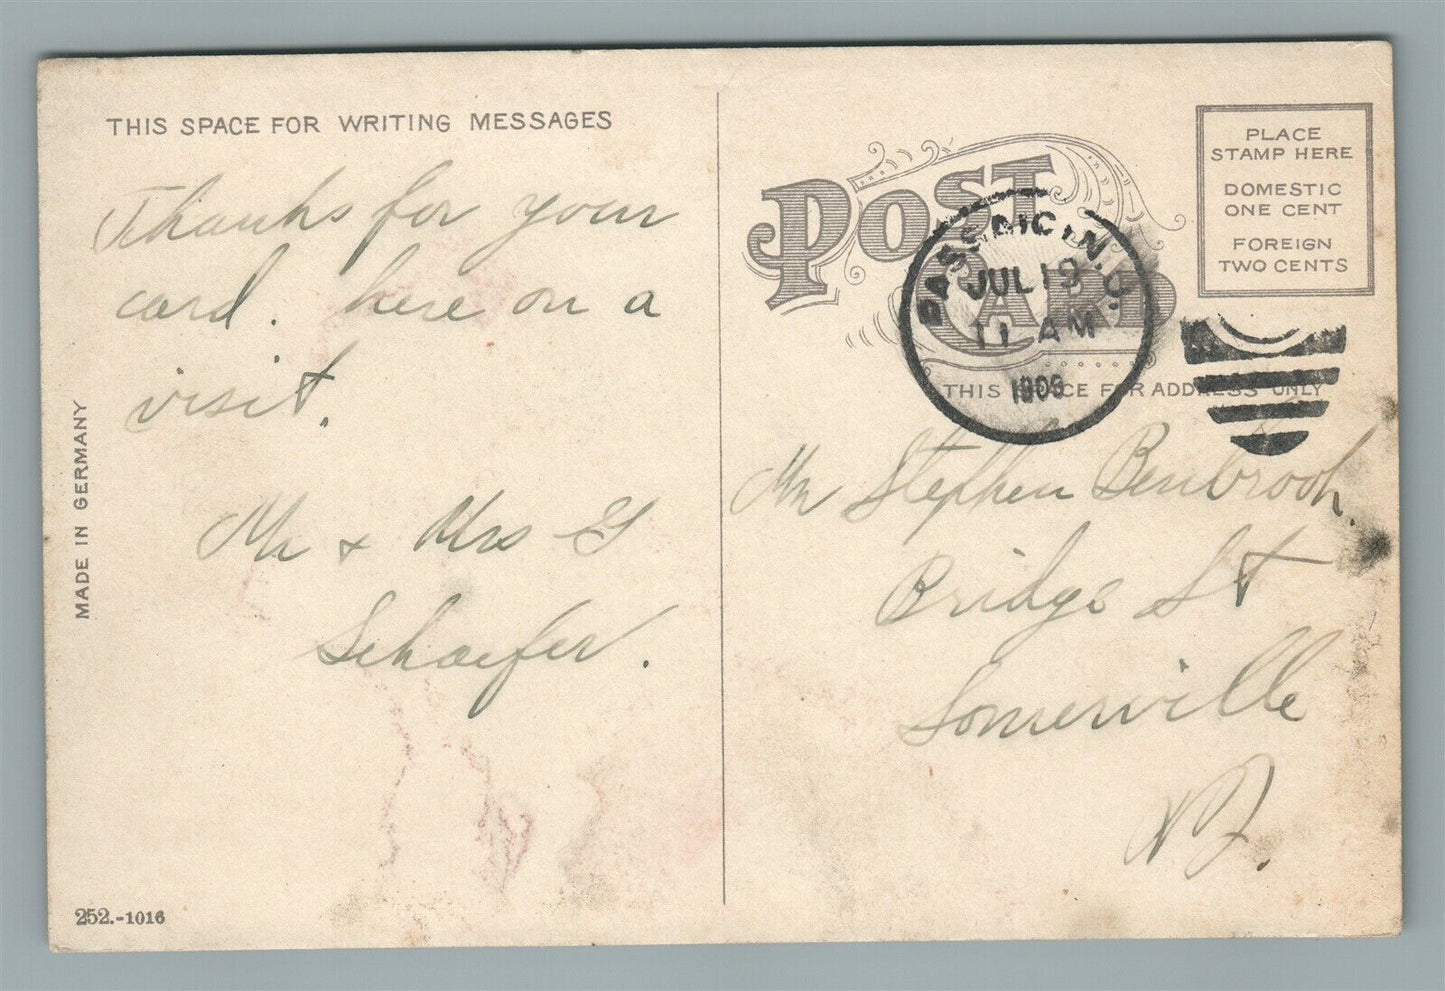 THIS SPACE FOR WRITING MESSAGES
Thanks for your
card. here on a
visit.
Mr + Mrs G
Schaefer.
MADE IN GERMANY
252.-1016
POST
CARD
PASSAIC, N.J.
JUL 19
11 AM
1909
PLACE
STAMP HERE
DOMESTIC
ONE CENT
FOREIGN
TWO CENTS
THIS SPACE FOR ADDRESS ONLY
Mr Stephen Benbrook,
Bridge St
Somerville
NJ.